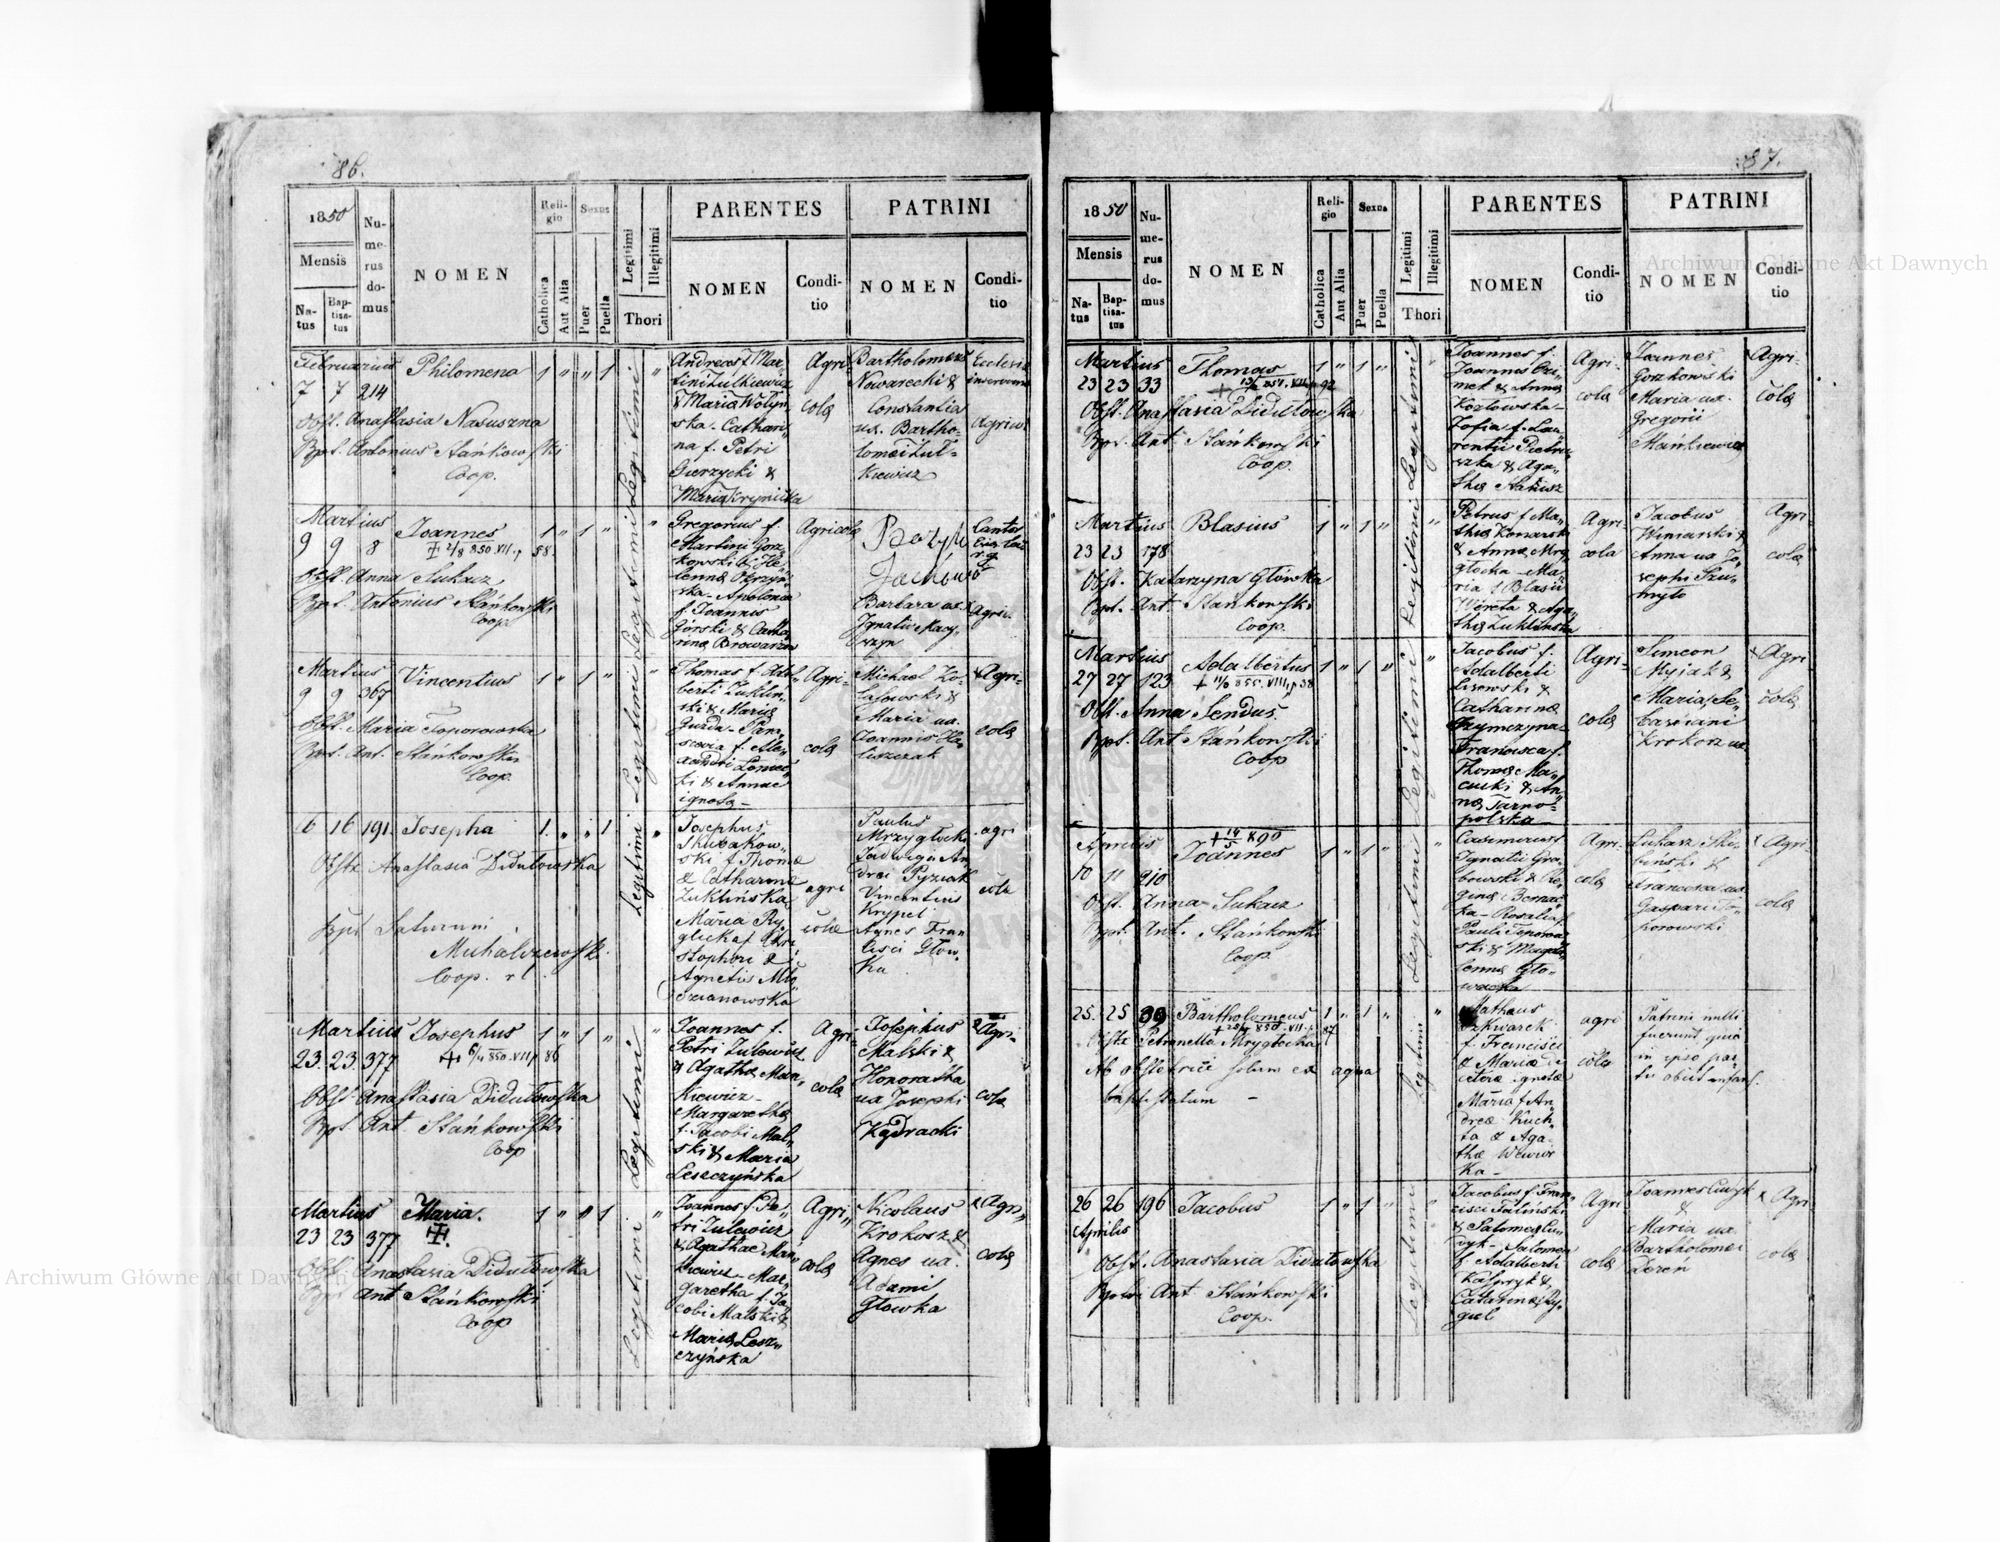 86.
1850
Mensis
Na-
tus
Bap-
tisa-
tus
Nu-
me-
rus
do-
mus
NOMEN
Reli-
gio
Catholica
Aut Alia
Sexus
Puer
Puella
Legitimi
Illegitimi
Thori
PARENTES
NOMEN
Condi-
tio
PATRINI
NOMEN
Condi-
tio
Februarius Philomena 1 " " 1 "
7 7 214
Obst. Anastasia Nasuszna
Bpt. Antonius Stańkowski
Coop.
Legitimi
Andreas f. Mar-
tini Żulkiewicz
& Maria Wołyn-
ska - Cathari-
na f. Petri
Gierzycki &
Maria Krynicka
Agri-
cola
Bartholomeus
Nowarecki &
Constantia
ux. Bartho-
lomei Żuł-
kiewicz
Ecclesia
Martius Joannes 1 " 1 " "
9 9 8 + 2/8 850. VII. p 58.
Obst. Anna Łukacz
Bpt. Antonius Stańkowski
Coop.
Legitimi
Gregorius f.
Martini Gorz-
kowski & He-
lenna
ska - Apolonia
f. Joannis
Górski & Catha-
rina Browarzin
Agricola
Barbara ux.
Ignatii
Cantor
Agri.
Martius Vincentius 1 " 1 " "
9 9 367
Obst. Maria Toporowska
Bpt. Ant. Stańkowski
Coop.
Legitimi
Thomas f. Adal-
berti Żukliń-
ski & Maria
Guzda - Fran-
f. Ale-
xandri
ki & Annae
ignota -
Agri-
cola
Michael Ko-
łasowski &
Maria ux.
Joannis Ha-
liszczak
Agri-
cola
16 16 191. Josepha 1. " " 1 "
Obstx Anastasia Didułowska
Bpt Saturnini
Michalszewski
Coop. r
Legitimi
Josephus
Skubakow-
ski f Thoma
& Catharina
Zuklińska
Maria Ry-
glicka f Chri-
stophori &
Agnetis
agri
cola
Paulus
Mrzygłocki
Jadwiga An-
drei Pyziak
Vincentius
Krypel
Agnes Fran
cisci Głow-
ka
agri
cola
Martius Josephus 1 " 1 " "
23. 23. 377 + 6/11 850. VII p 86
Obst. Anastasia Didułowska
Bpt. Ant. Stańkowski
Coop
Legitimi
Joannes f.
Petri Żulewicz
& Agatha Man-
kiewicz -
Margaretha
f. Jacobi Mal-
ski & Maria
Leszczyńska
Agri-
cola
Josephus
Malski &
Honoratha
ux Josephi
Kędracki
Agri-
cola
Martius Maria. 1 " " 1 "
23 23 377 +.
Obst. Anastasia Didułowska
Bpt Ant Stańkowski
Coop
Legitimi
Joannes f. Pe-
tri Żulewicz
& Agathae Man-
kiewicz - Mar-
garetha f. Ja-
cobi Malski &
Maria Lesz-
czyńska
Agri-
cola
Nicolaus
Krokosz &
Agnes ux.
Adami
Głowka
Agri-
cola
87.
1850
Mensis
Na-
tus
Bap-
tisa-
tus
Nu-
me-
rus
do-
mus
NOMEN
Reli-
gio
Catholica
Aut Alia
Sexus
Puer
Puella
Legitimi
Illegitimi
Thori
PARENTES
NOMEN
Condi-
tio
PATRINI
NOMEN
Condi-
tio
Martius Thomas 1 " 1 "
23 23 33
Obst. Anastasia Didułowska
Bpt. Ant Stańkowski
Coop.
Legitimi
Joannes f.
Joannes
& Anna
Kozłowska -
Zofia f. Lau-
rentii Pietru-
szka & Aga-
tha
Agri-
cola
Joannes
Gorzkowski
Maria ux.
Gregorii
Mańkiewicz
Agri-
cola
Martius Blasius 1 " 1 " "
23 23 178
Obst. Katarzyna Główka
Bpt. Ant Stańkowski
Coop.
Legitimi
Petrus f Ma-
thia Komarski
& Anna Mry-
głocka - Ma-
ria f Blasii
& Aga-
tha Zuklińska
Agri-
cola
Jacobus
Winiarski &
Anna ux Jo-
sephi Szu-
myło
Agri-
cola
Martius Adalbertus 1 " 1 " "
27 27 123 + 11/6 855. VIII, p 38
Obst. Anna Sendus.
Bpt. Ant Stańkowski
Coop
Legitimi
Jacobus f.
Adalberti
Lisowski &
Catharina
Szymczyna
Francisca f.
Thoma Ma-
cucki & An-
na Tarno-
polska -
Agri-
cola
Simeon
Mysiak &
Maria Se-
bastiani
Krokosz ux.
Agri
cola
Aprilis Joannes 1 " 1 "
10 11 210
Obst. Anna Łukacz
Bpt. Ant. Stańkowski
Coop.
Legitimi
Casimirus f.
Ignatii Gra-
bowski & Re-
gina Bernac-
ka - Rosalia f.
Pauli Toporow-
ski & Magda-
lenna Gło-
wacka
Agri-
cola
Lukasz Ski-
binski &
Francisca ux
Gaspari To-
porowski
Agri-
cola
25. 25 30 Bartholomeus 1 " 1 " "
Obstx Petronella Mrygłocka
Ab obstetrice solum ex aqua
baptisatum -
Legitimi
Mathaus
Szkwarek
f. Francisci
& Maria de
cetera ignota
Maria f An-
drea Kuch-
ta & Aga-
tha Wiewior
ka -
agri
cola
Patrini nulli
fuerunt quia
in ipso par-
tu obiit infans.
26 26 196 Jacobus 1 " 1 " "
Aprilis
Obst. Anastasia Didułowska
Bptis Ant Stańkowski
Coop.
Legitimi
Jacobus f. Fran-
cisci
& Salomea Cu-
dyk - Salomea
f. Adalberti
Kasprzyk &
Catarina Ry-
giel
Agri
cola
Joannes Cudyk
&
Maria ux.
Bartholomei
Dereń
Agri-
cola
Archiwum Główne Akt Dawnych
Archiwum Główne Akt Dawnych